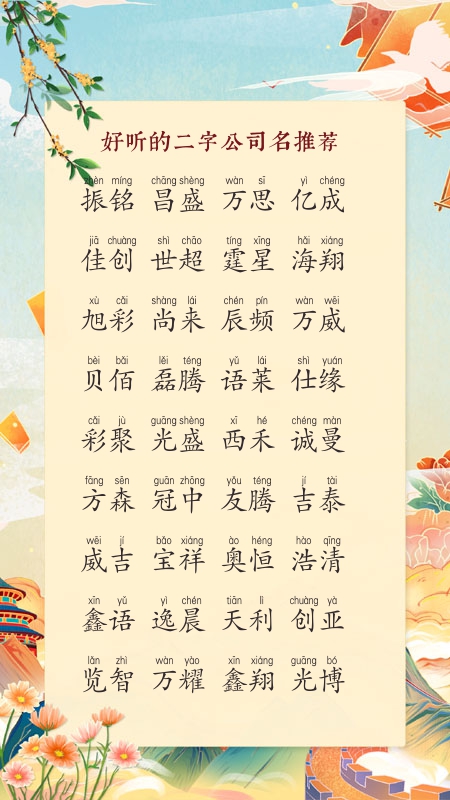 好听的二字公司名推荐
zhèn míng chāng shèng wàn sī yì chéng
振铭 昌盛 万思 亿成
jiā chuàng shì chāo tíng xīng hǎi xiáng
佳创 世超 霆星 海翔
xù cǎi shàng lái chén pín wàn wēi
旭彩 尚来 辰频 万威
bèi bǎi lěi téng yǔ lái shì yuán
贝佰 磊腾 语莱 仕缘
cǎi jù guāng shèng xī hé chéng màn
彩聚 光盛 西禾 诚曼
fāng sēn guān zhōng yǒu téng jí tài
方森 冠中 友腾 吉泰
wēi jí bǎo xiáng ào héng hào qīng
威吉 宝祥 奥恒 浩清
xīn yǔ yì chén tiān lì chuàng yà
鑫语 逸晨 天利 创亚
lǎn zhì wàn yào xīn xiáng guāng bó
览智 万耀 鑫翔 光博